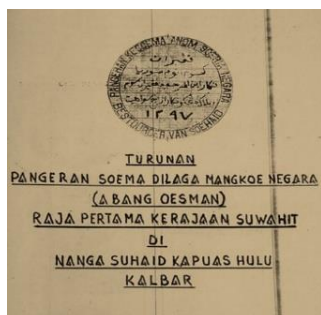 PANGERAN KESOEMA ANOM SOERIA NEGARA
BESTUURDER VAN SOEHAID
١٢٩٧
TURUNAN
PANGERAN SOEMA DILAGA MANGKOE NEGARA
(ABANG OESMAN)
RAJA PERTAMA KERAJAAN SUWAHIT
DI
NANGA SUHAID KAPUAS HULU
KALBAR